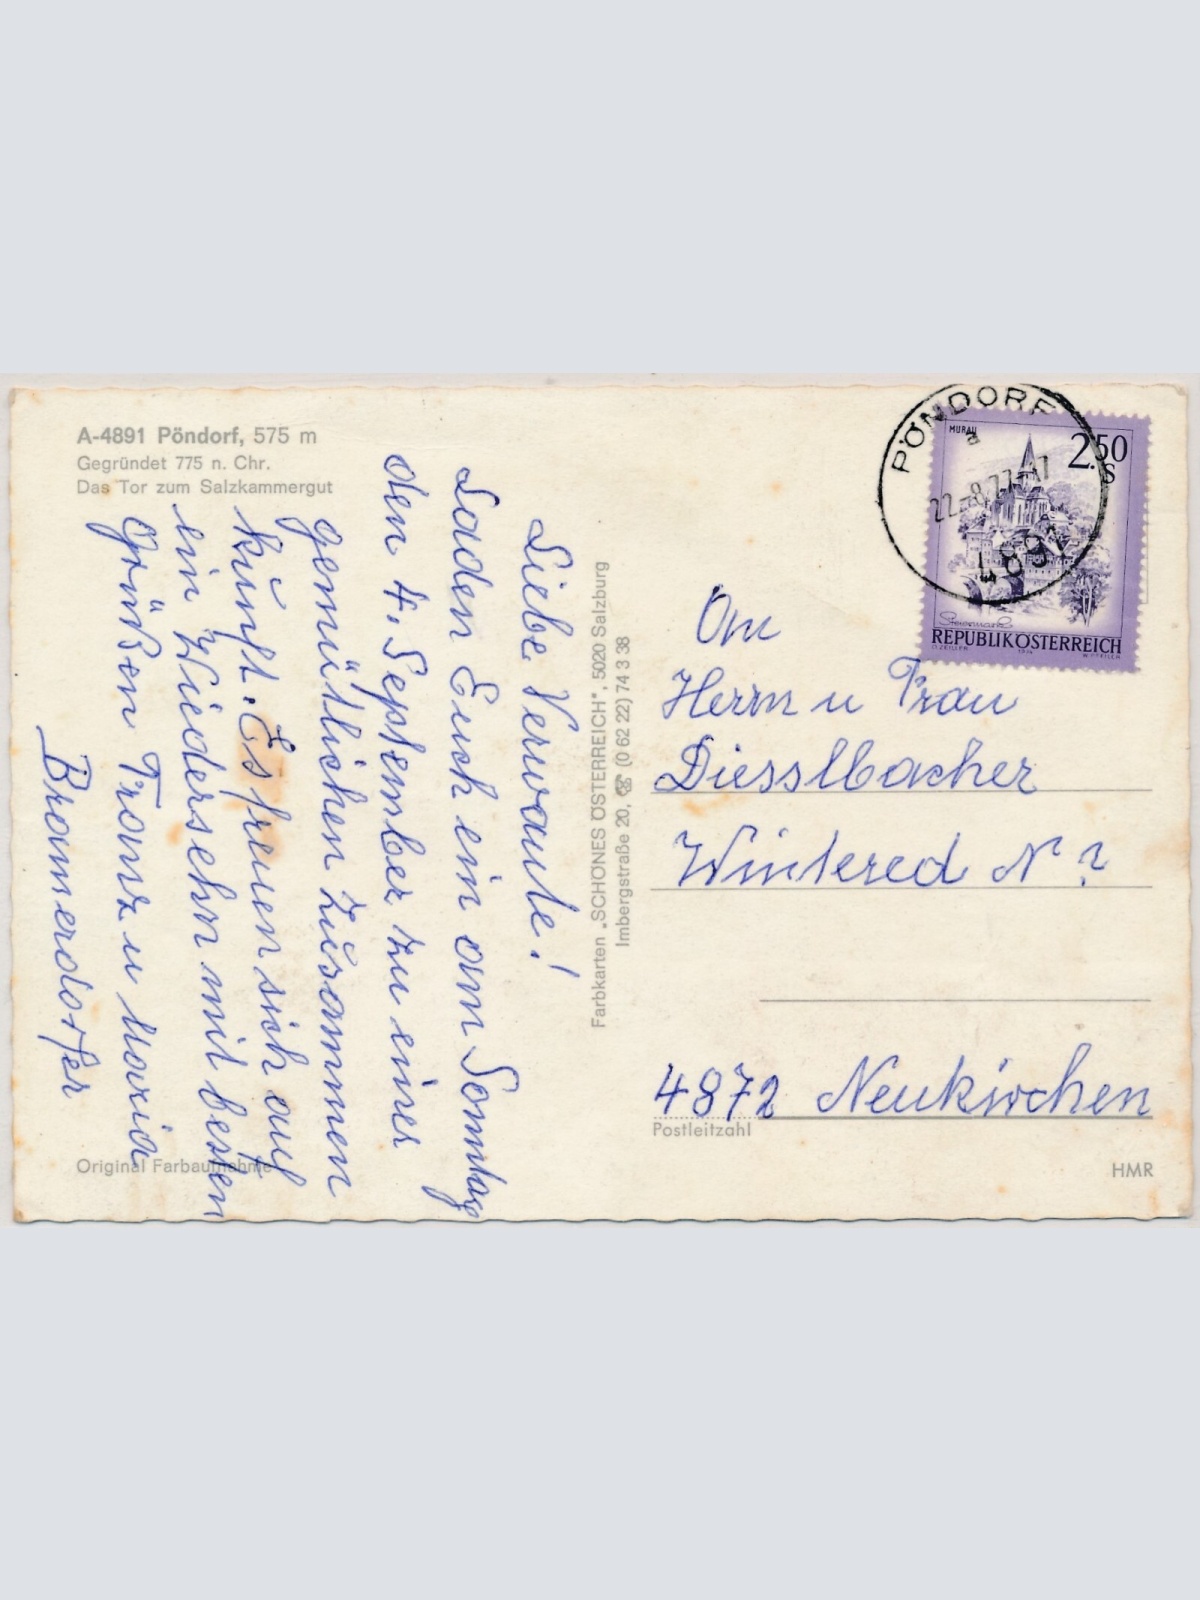 A-4891 Pöndorf, 575 m
Gegründet 775 n. Chr.
Das Tor zum Salzkammergut
Liebe Verwante!
Laden Euch ein am Sonntag
den 4. September zu einer
gemütlichen Zusammen
kunft. Es freuen sich auf
ein Wiedersehn mit besten
Grüßen Franz u Maria
Bramerdorfer
Original Farbaufnahme
Farbkarten „SCHÖNES ÖSTERREICH", 5020 Salzburg
Imbergstraße 20, ☎ (0 62 22) 74 3 38
PÖNDORF
a
22.-8.77-17
4891
MURAU
2.50
S
Steiermark
REPUBLIK ÖSTERREICH
O. ZEILER
1974
W. PFEILER
An
Herrn u Frau
Diesslbacher
Wintered N ?
4872 Neukirchen
Postleitzahl
HMR